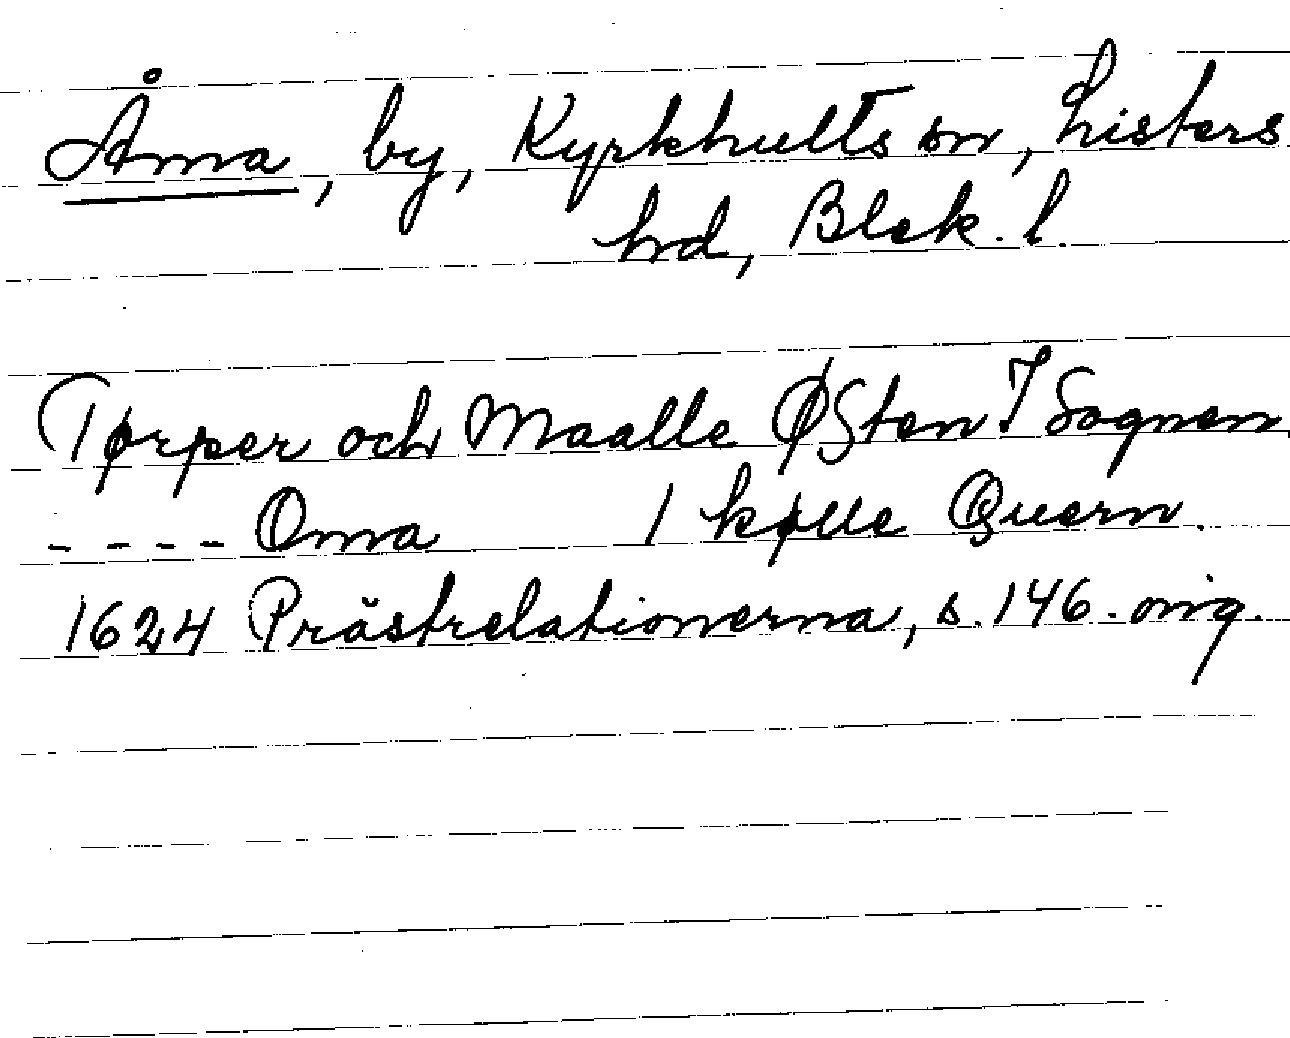 Åma, by, Kyrkhults sn, Listers
hd, Blek. l.
Tørper och Maalle ØSten I Sognen
- - - - Oma 1 kølle Quern.
1624 Prästrelationerna, s. 146. orig.